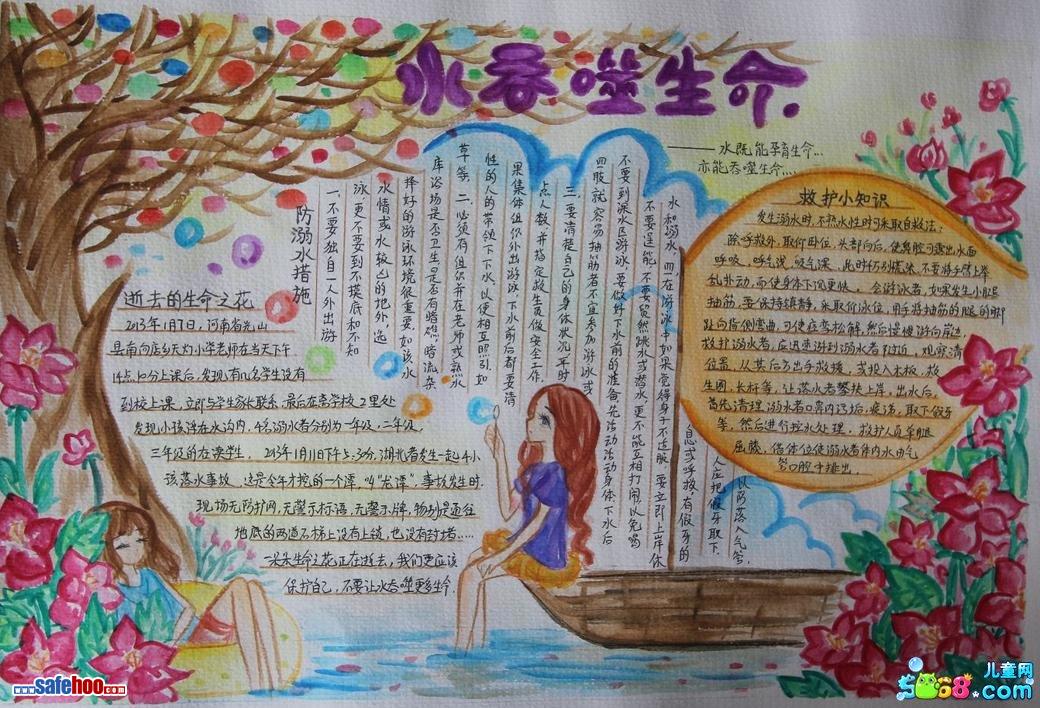 水吞噬生命.
——水既能孕育生命...
亦能吞噬生命...
逝去的生命之花
2013年1月7日,河南省光山
县南向店乡天灯小学老师在当天下午
14点10分上课后,发现有几名学生没有
到校上课,立即与学生家长联系,最后在离学校2里处
发现小孩浮在水沟内,4名溺水者分别为一年级,二年级,
三年级的在读学生。2013年1月11日下午5:30分,湖北省发生一起4小
孩落水事故。这是今年才挖的一个潭,叫“龙潭”,事故发生时
现场无防护网,无警示标语,无警示牌,特别是通往
地底的两道石梯上没有上锁,也没有封堵……
一朵朵生命之花正在逝去,我们更应该
保护自己,不要让水吞噬更多生命.
防溺水措施
一、不要独自一人外出游
泳,更不要到不摸底和不知
水情或水较凶的地外,选
择好的游泳环境很重要,如该水
库浴场是否卫生,是否有暗礁,暗流,杂
草等。二、必须有组织并在老师或熟水
性的人的带领下下水,以便相互照引,如
果集体组织外出游泳,下水前后都要清
点人数,并指定救生员做安全工作。
三、要清楚自己的身体状况,平时
四肢就容易抽筋者不宜参加游泳或
不要到深水区游泳,要做好下水前的准备,先活动活动身体,下水后
不要逞能,不要贸然跳水或潜水,更不能互相打闹,以免喝
水和溺水。四、在游泳中如果觉得身子不适服,要立即上岸休
息或呼救,有假牙的
人应把假牙取下,
以防落入气管。
救护小知识
发生溺水时,不熟水性时可采取自救法:
除呼救外,取仰卧位,头部向后,使鼻腔可露出水面
呼吸,呼气浅,吸气深,此时切勿慌张,不要将手臂上举
乱扑动,而使身体下沉更快。会游泳者,如果发生小腿
抽筋,要保持镇静,采取仰泳位,用手将抽筋的腿的脚
趾向背侧弯曲,可使痉挛松解,然后慢慢游向岸边。
救护溺水者,应迅速游到溺水者附近,观察清
位置,从其后方出手救援,或投入木板,救
生圈,长杆等,让落水者攀扶上岸,出水后,
首先清理溺水者口鼻内污垢,痰涕,取下假牙
等,然后进行控水处理,救护人员单腿
屈膝,俯体位使溺水者体内水由气
管口腔中排出。
www.safehoo.com
儿童网
5068.com